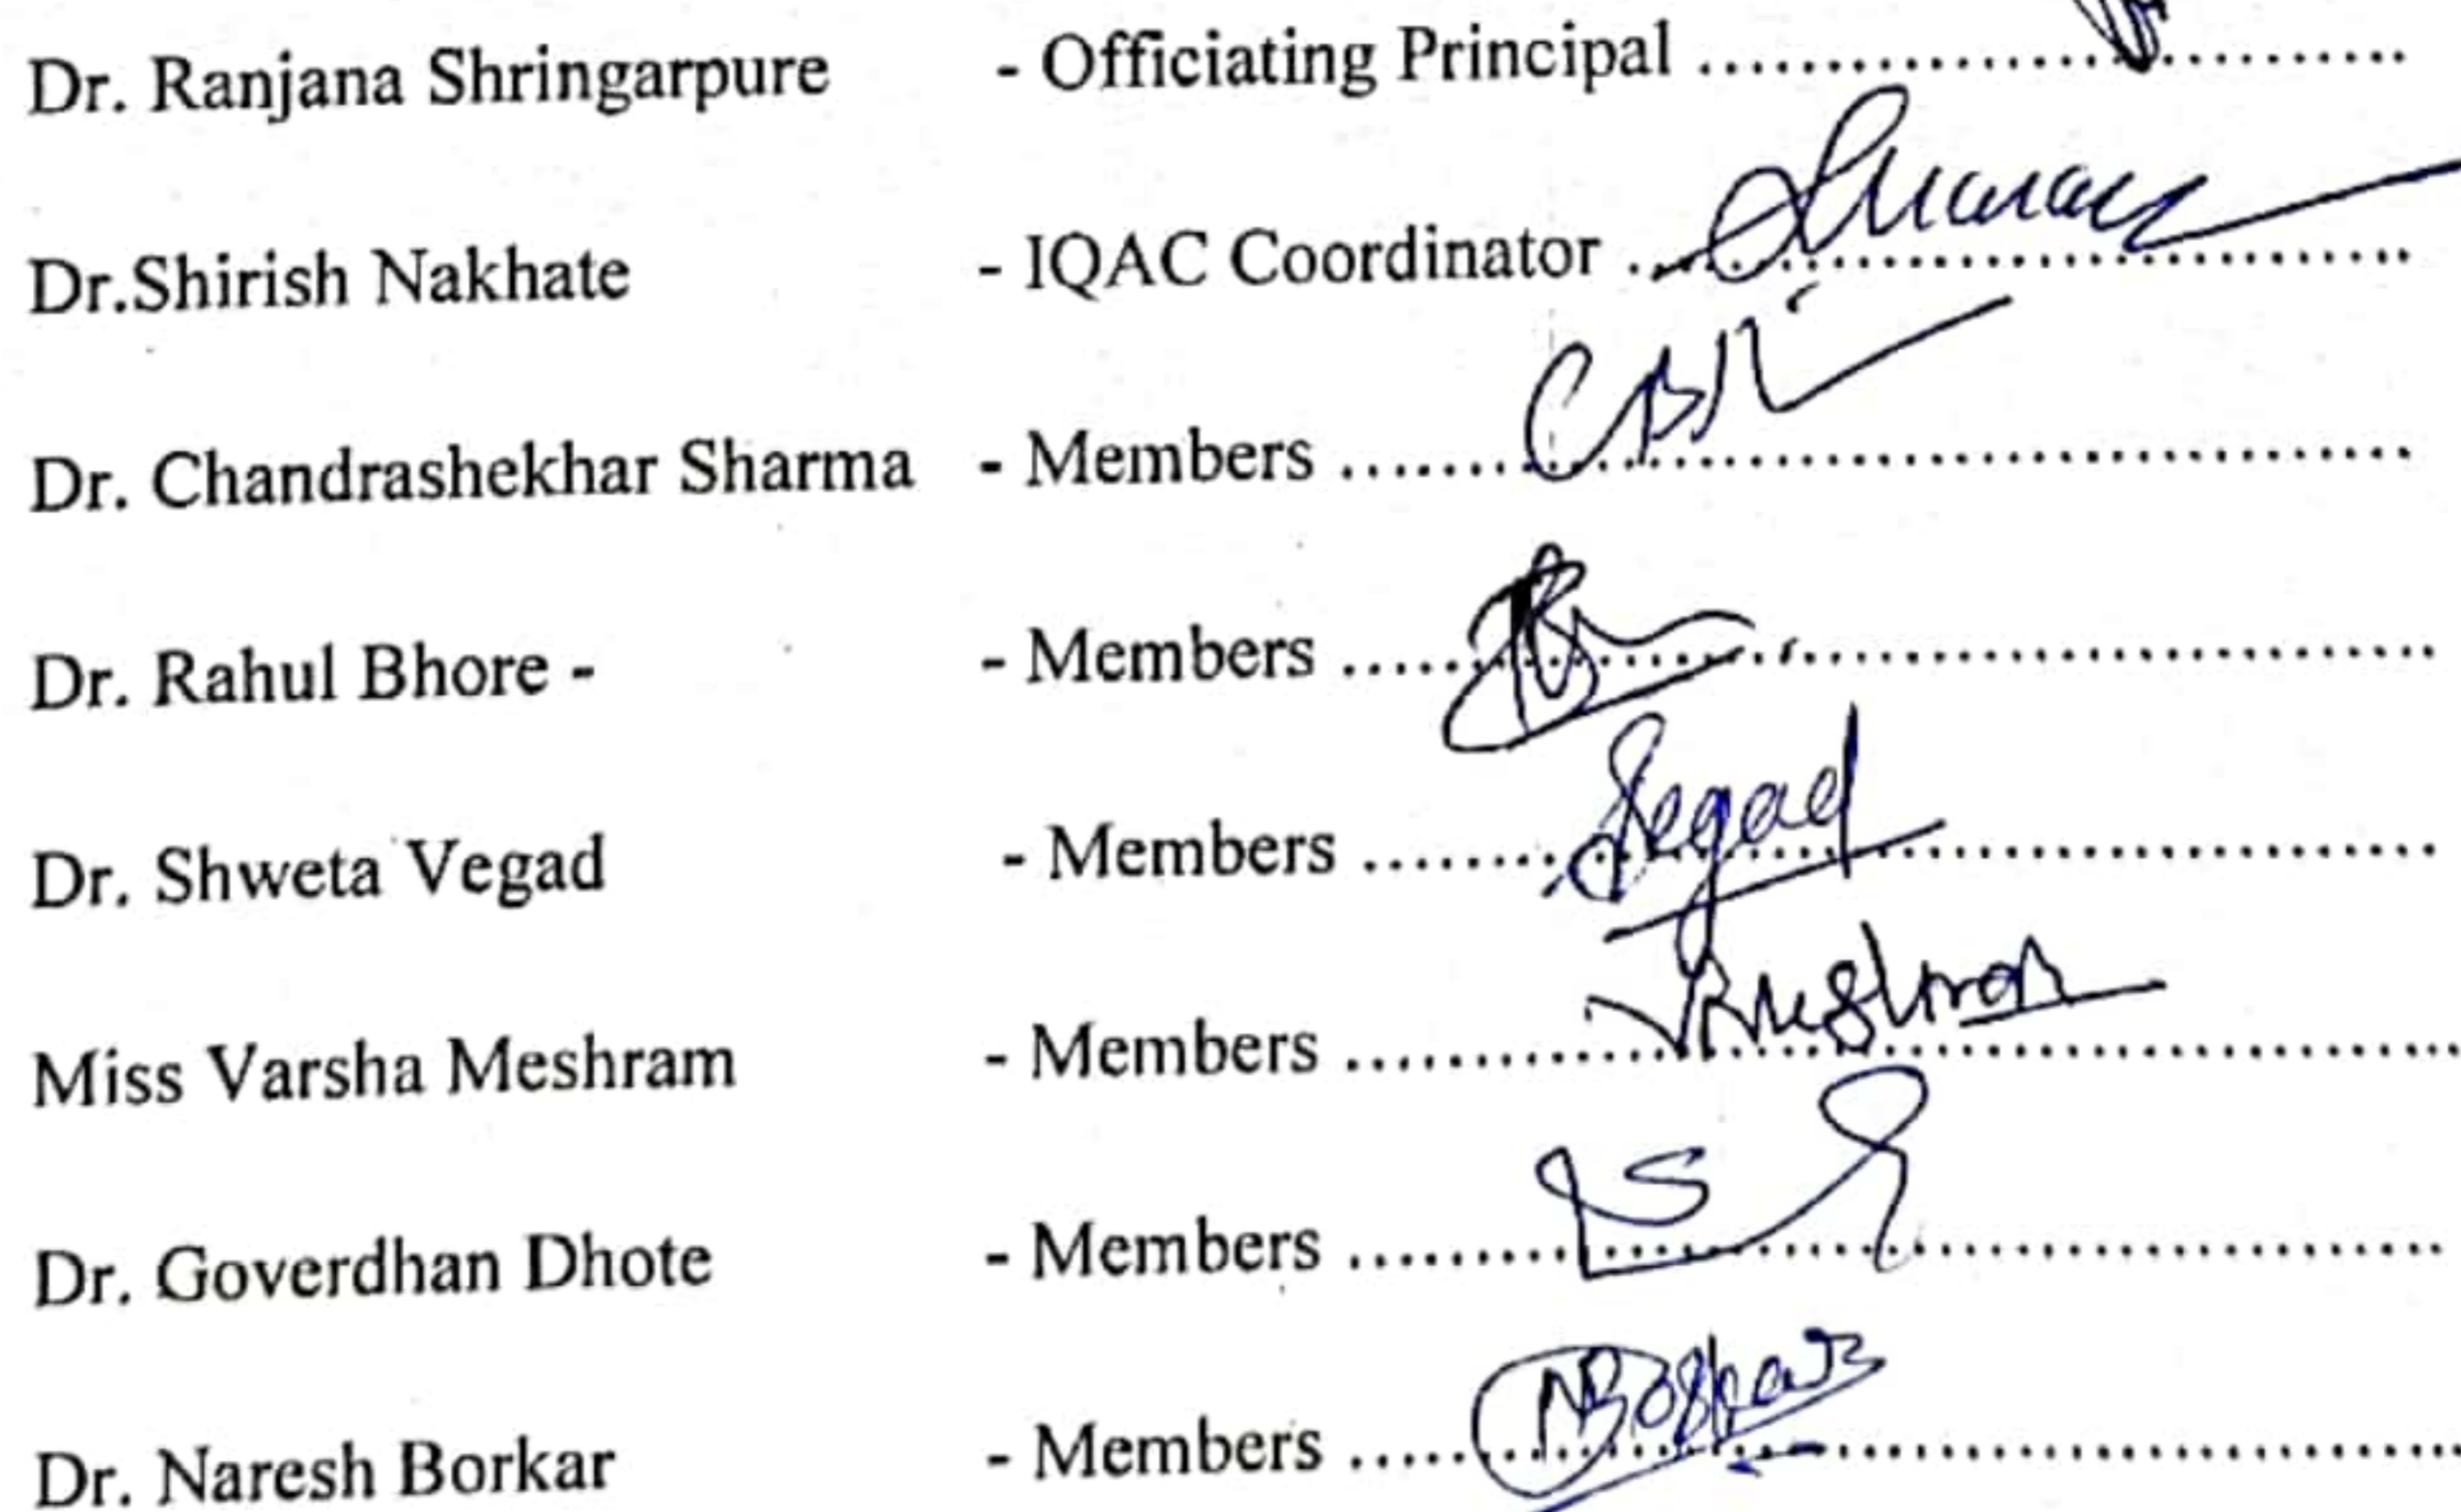 Dr. Ranjana Shringarpure - Officiating Principal ..............................
Dr.Shirish Nakhate - IQAC Coordinator ..............................
Dr. Chandrashekhar Sharma - Members ..............................
Dr. Rahul Bhore - - Members ..............................
Dr. Shweta Vegad - Members .............................. Vegad
Miss Varsha Meshram - Members ..............................
Dr. Goverdhan Dhote - Members ..............................
Dr. Naresh Borkar - Members ..............................